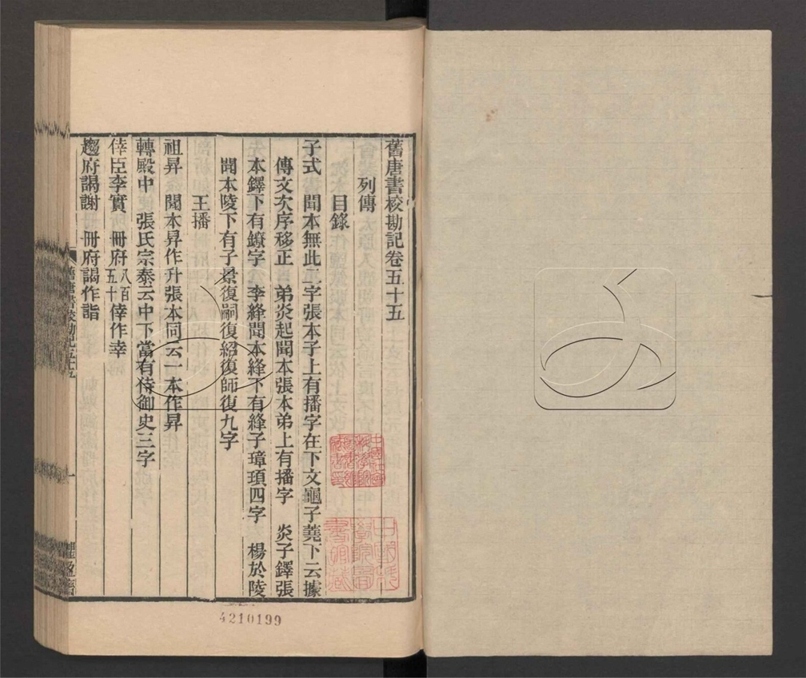 舊唐書校勘記卷五十五
列傳
目錄
子式　聞本無此二字張本子上有播字在下文龜子蕘下云據
傳文次序移正　弟炎起聞本張本弟上有播字　炎子鐸張
本鐸下有鐐字　李絳聞本絳下有絳子璋頊四字　楊於陵
聞本陵下有子景復嗣復紹復師復九字
王播
祖昇　聞本昇作升張本同云一本作昇
轉殿中　張氏宗泰云中下當有侍御史三字
倖臣李實　冊府八百五十倖作幸
趨府謁謝　冊府謁作詣
舊唐書校勘記五十五
一
懼盈齋
4210199